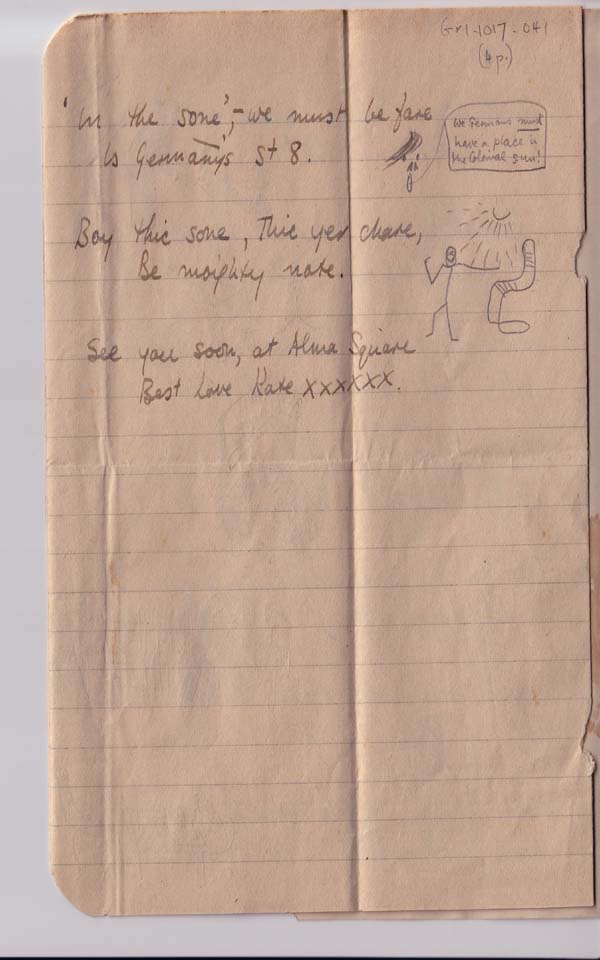 Gr1-1017-041
(4p.)
'In the sone', - we must be fare
Is Germany's St 8.
We Germans must
have a place in
the Colonial sun!
Boy this sone, This yer chare,
Be moighty nate.
See you soon, at Alma Square
Best Love Kate xxxxxx.